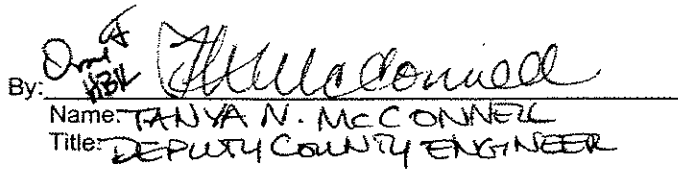 By: HBK McConnell
Name: TANYA N. MCCONNELL
Title: DEPUTY COUNTY ENGINEER